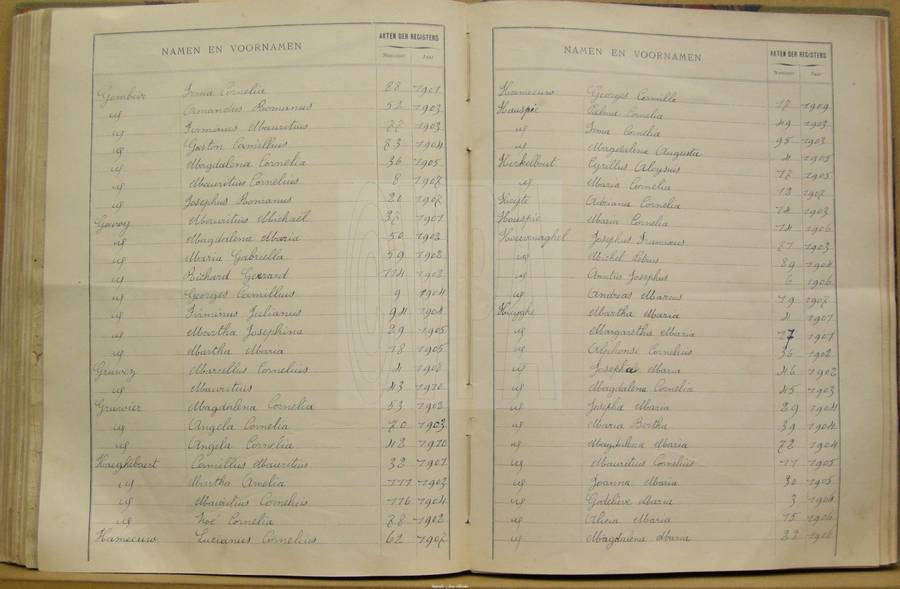 NAMEN EN VOORNAMEN AKTEN DER REGISTERS
Nummer Jaar
Gombeir Irma Cornelia 28 1901
id Armandus Romanus 52 1903
id Firminus Mauritius 77 1903
id Gaston Camillius 73 1904
id Magdalena Cornelia 36 1905
id Mauritius Cornelius 8 1907
id Josephus Romanus 20 1907
Gouwy Mauritius Michaël 37 1901
id Magdalena Maria 50 1902
id Maria Gabriella 59 1902
id Richard Gerard 114 1902
id Georges Camillius 9 1904
id Firminus Julianus 94 1904
id Martha Josephina 29 1905
id Martha Maria 18 1905
Gruwez Marcellus Cornelius 4 1908
id Mauritius 43 1910
Gruwier Magdalena Cornelia 53 1902
id Angela Cornelia 70 1903
id Angela Cornelia 42 1910
Haeghebaert Camillus Mauritius 32 1901
id Martha Amelia 111 1903
id Mauritius Cornelius 116 1904
id Noë Cornelia 78 1902
Hameeuw Lucianus Cornelius 62 1907
NAMEN EN VOORNAMEN AKTEN DER REGISTERS
Nummer Jaar
Hameeuw Georges Cornille 17 1909
Hauspie Palma Cornelia 49 1903
id Irma Cornelia 95 1903
id Magdalena Augusta 4 1905
Herkelbout Cyrillus Aloysius 17 1905
id Maria Cornelia 12 1907
Adriana Cornelia 74 1903
Hauspie Maria Cornelia 14 1906
Hoevenaghel Josephus Franciscus 27 1903
id Michel Petrus 89 1904
id Josephus 6 1906
id Andreas Marcus 19 1907
Huyghe Martha Maria 4 1901
id Margaretha Maria 27 1901
id Alphonse Cornelius 36 1902
id Josepha Maria 46 1902
id Magdalena Cornelia 45 1903
id Josepha Maria 29 1904
id Maria Bertha 39 1904
id Magdalena Maria 72 1904
id Mauritius Cornelius 11 1905
id Joanna Maria 30 1905
id Godelieve Maria 3 1906
id Alicia Maria 15 1906
id Magdalena Maria 22 1906